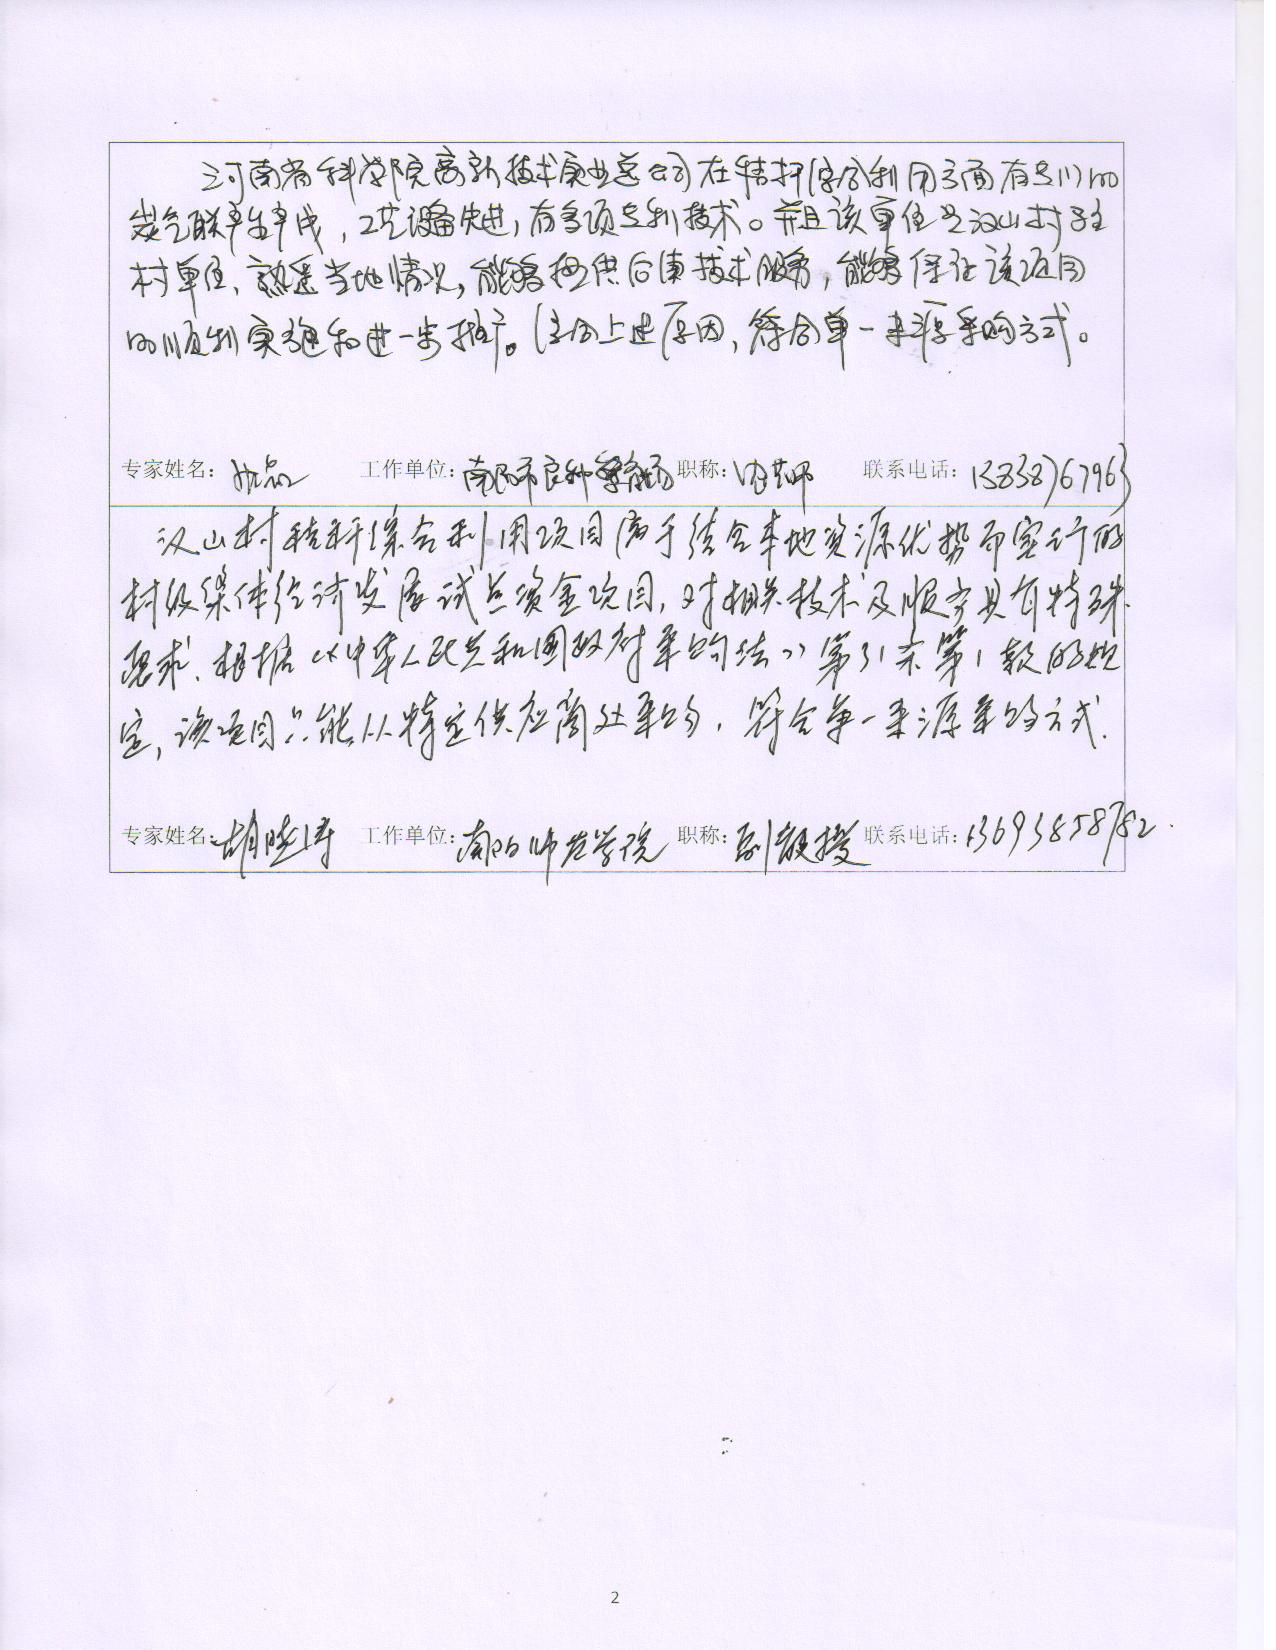 河南省科学院高新技术实业总公司在秸秆综合利用方面有专门的
炭气联产生产线，工艺设备先进，有多项专利技术。并且该单位是汉山村驻
村单位、熟悉当地情况，能够提供后续技术服务，能够保证该项目
的顺利实施和进一步推广。综合上述原因，符合单一来源采购方式。
专家姓名： 工作单位：南阳市良种繁育场 职称：农艺师 联系电话：13838767963
汉山村秸秆综合利用项目属于结合本地资源优势而实行的
村级集体经济发展试点资金项目，对相关技术及服务具有特殊
要求．根据《中华人民共和国政府采购法》第31条第1款的规
定，该项目只能从特定供应商处采购，符合单一来源采购方式．
专家姓名：胡晓涛 工作单位：南阳师范学院 职称：副教授 联系电话：13693858782．
2